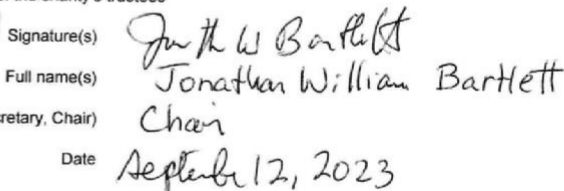 the charity's trustees
Signature(s) Jonth W Bartlett
Full name(s) Jonathan William Bartlett
retary, Chair) Chair
Date September 12, 2023